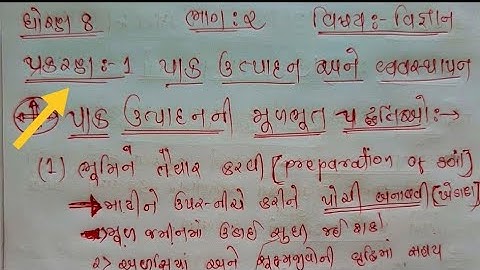 ધોરણ 8 ભાગ:૨ વિષય:- વિજ્ઞાન
પ્રકરણ:- 1 પાક ઉત્પાદન અને વ્યવસ્થાપન
પાક ઉત્પાદનની મૂળભૂત પદ્ધતિઓ:→
(1) ભૂમિને તૈયાર કરવી [preparation of
→ માટીને ઉપર-નીચે કરીને પોચી બનાવવી (ખેડાણ)
મૂળ જમીનમાં ઉંડાઈ સુધી જઈ શકે
૨> અળસિયાં અને સૂક્ષ્મજીવોની વૃદ્ધિમાં સહાય